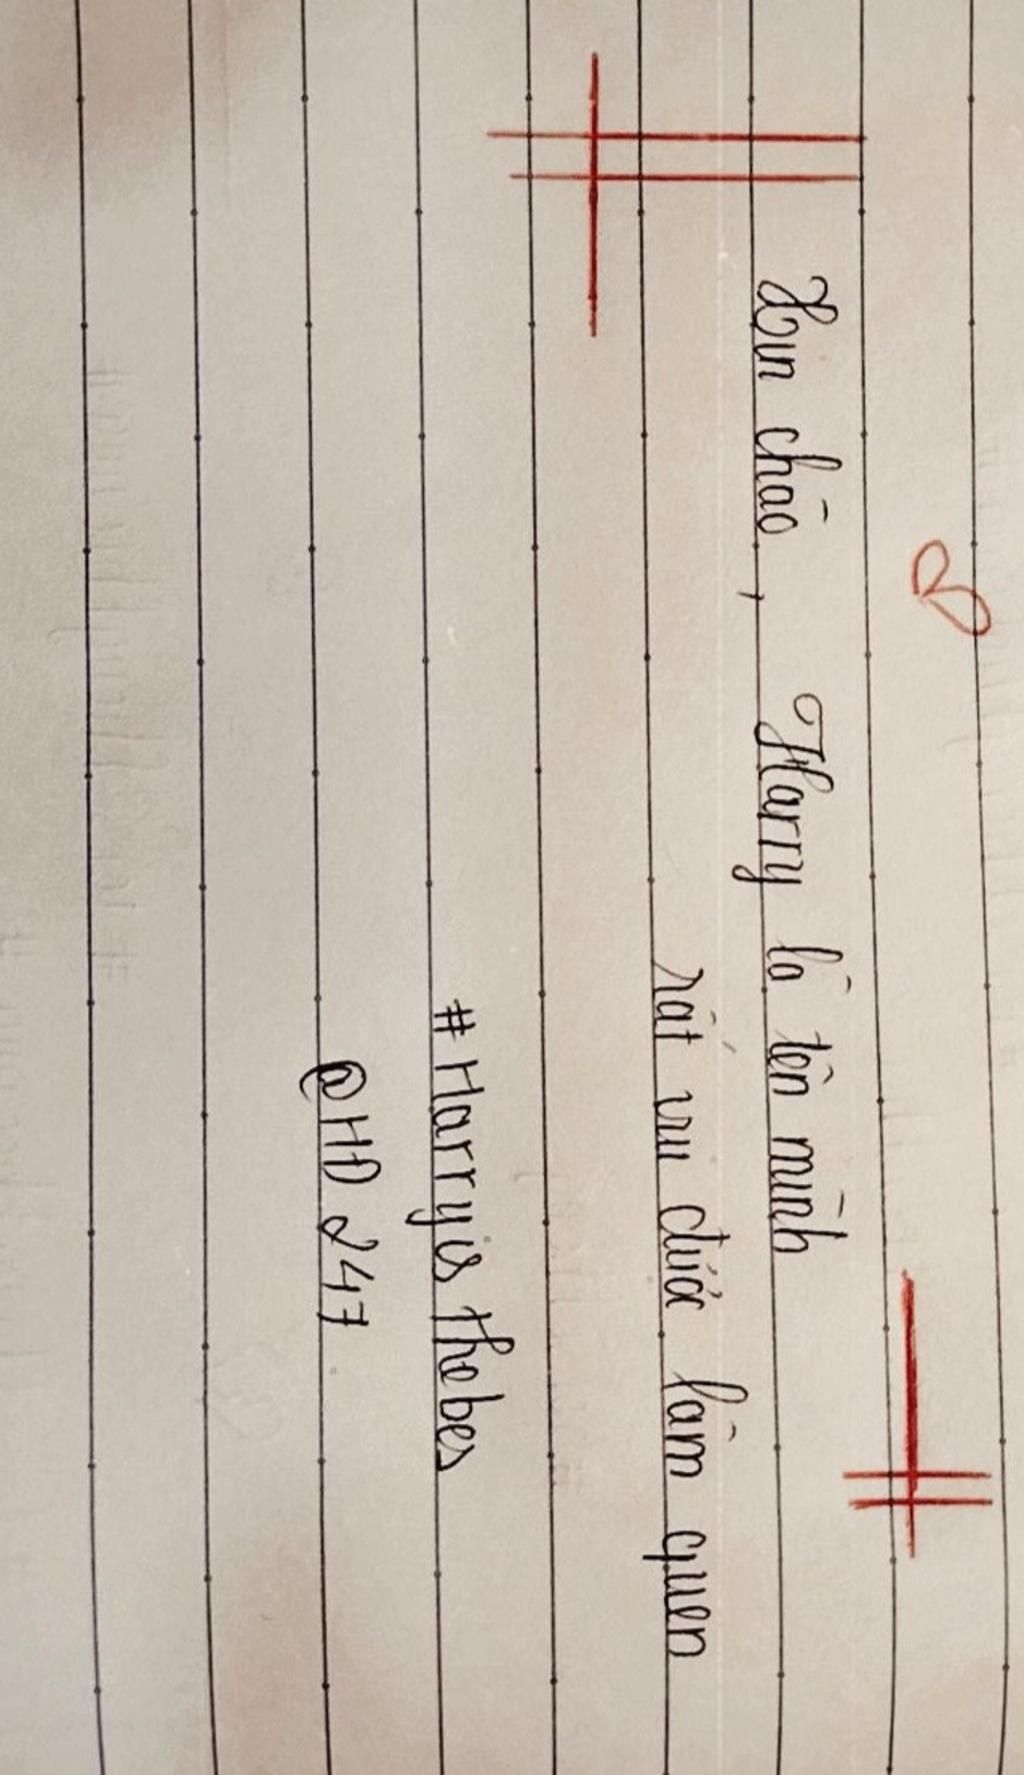 Xin chào, Harry là tên mình
rất vui được làm quen
#Harryis thebes
@HD 247